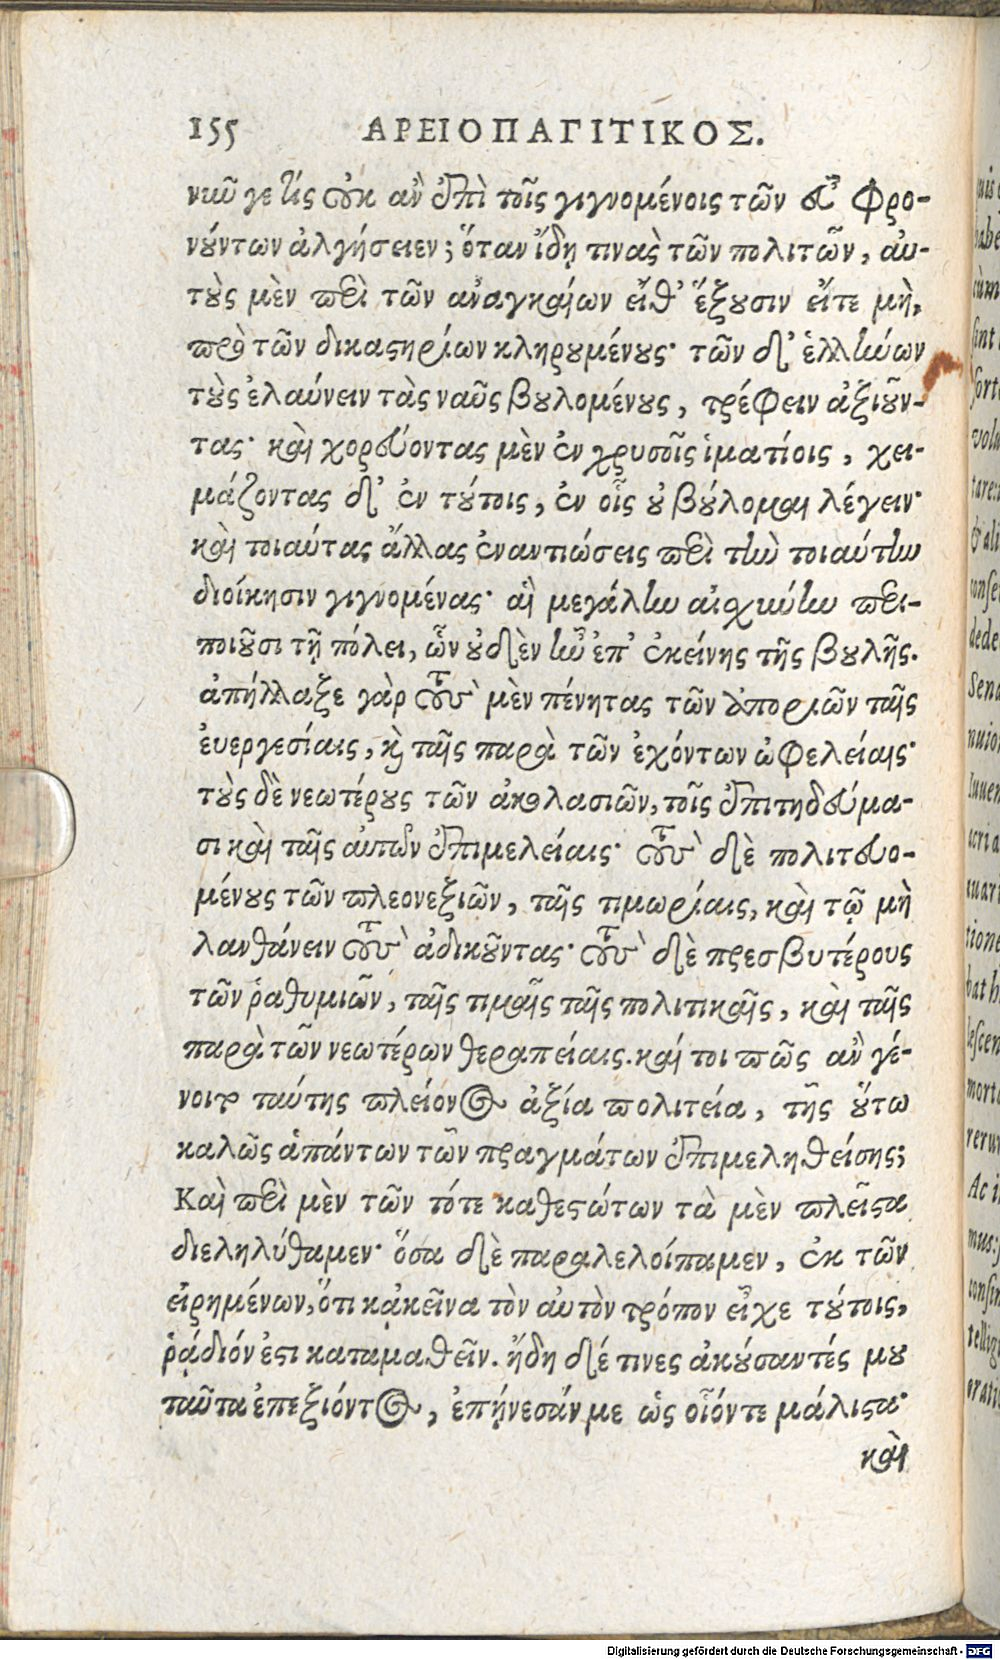 155 ΑΡΕΙΟΠΑΓΙΤΙΚΟΣ.
νῦν γε τίς οὐκ ἂν ἐπὶ τοῖς γιγνομένοις τῶν εὖ φρο-
νούντων ἀλγήσειεν; ὅταν ἴδῃ τινὰς τῶν πολιτῶν, αὐ-
τοὺς μὲν περὶ τῶν ἀναγκαίων εἴθ' ἕξουσιν εἴτε μὴ,
πρὸ τῶν δικαστηρίων κληρουμένους· τῶν δ' ἑλλήνων
τοὺς ἐλαύνειν τὰς ναῦς βουλομένους, τρέφειν ἀξιοῦν-
τας· καὶ χορεύοντας μὲν ἐν χρυσοῖς ἱματίοις, χει-
μάζοντας δ' ἐν τούτοις, ἐν οἷς οὐ βούλομαι λέγειν·
καὶ τοιαύτας ἄλλας ἐναντιώσεις περὶ τὴν τοιαύτην
διοίκησιν γιγνομένας· αἳ μεγάλην αἰσχύνην περι-
ποιοῦσι τῇ πόλει, ὧν οὐδὲν ἦν ἐπ' ἐκείνης τῆς βουλῆς.
ἀπήλλαξε γὰρ τοὺς μὲν πένητας τῶν ἀποριῶν ταῖς
ἐυεργεσίαις, καὶ ταῖς παρὰ τῶν ἐχόντων ὠφελείαις·
τοὺς δὲ νεωτέρους τῶν ἀκολασιῶν, τοῖς ἐπιτηδεύμα-
σι καὶ ταῖς αὐτῶν ἐπιμελείαις· τοὺς δὲ πολιτευο-
μένους τῶν πλεονεξιῶν, ταῖς τιμωρίαις, καὶ τῷ μὴ
λανθάνειν τοὺς ἀδικοῦντας· τοὺς δὲ πρεσβυτέρους
τῶν ῥαθυμιῶν, ταῖς τιμαῖς ταῖς πολιτικαῖς, καὶ ταῖς
παρὰ τῶν νεωτέρων θεραπείαις. καί τοι πῶς ἂν γέ-
νοιτο ταύτης πλείονος ἀξία πολιτεία, τῆς οὕτω
καλῶς ἁπάντων τῶν πραγμάτων ἐπιμεληθείσης;
Καὶ περὶ μὲν τῶν τότε καθεστώτων τὰ μὲν πλεῖστα
διεληλύθαμεν· ὅσα δὲ παραλελοίπαμεν, ἐκ τῶν
εἰρημένων, ὅτι κἀκεῖνα τὸν αὐτὸν τρόπον εἶχε τούτοις,
ῥᾴδιόν ἐστι καταμαθεῖν. ἤδη δέ τινες ἀκούσαντές μου
ταῦτα ἐπεξιόντος, ἐπῄνεσάν με ὡς οἷόντε μάλιστα·
καὶ
Digitalisierung gefördert durch die Deutsche Forschungsgemeinschaft - DFG